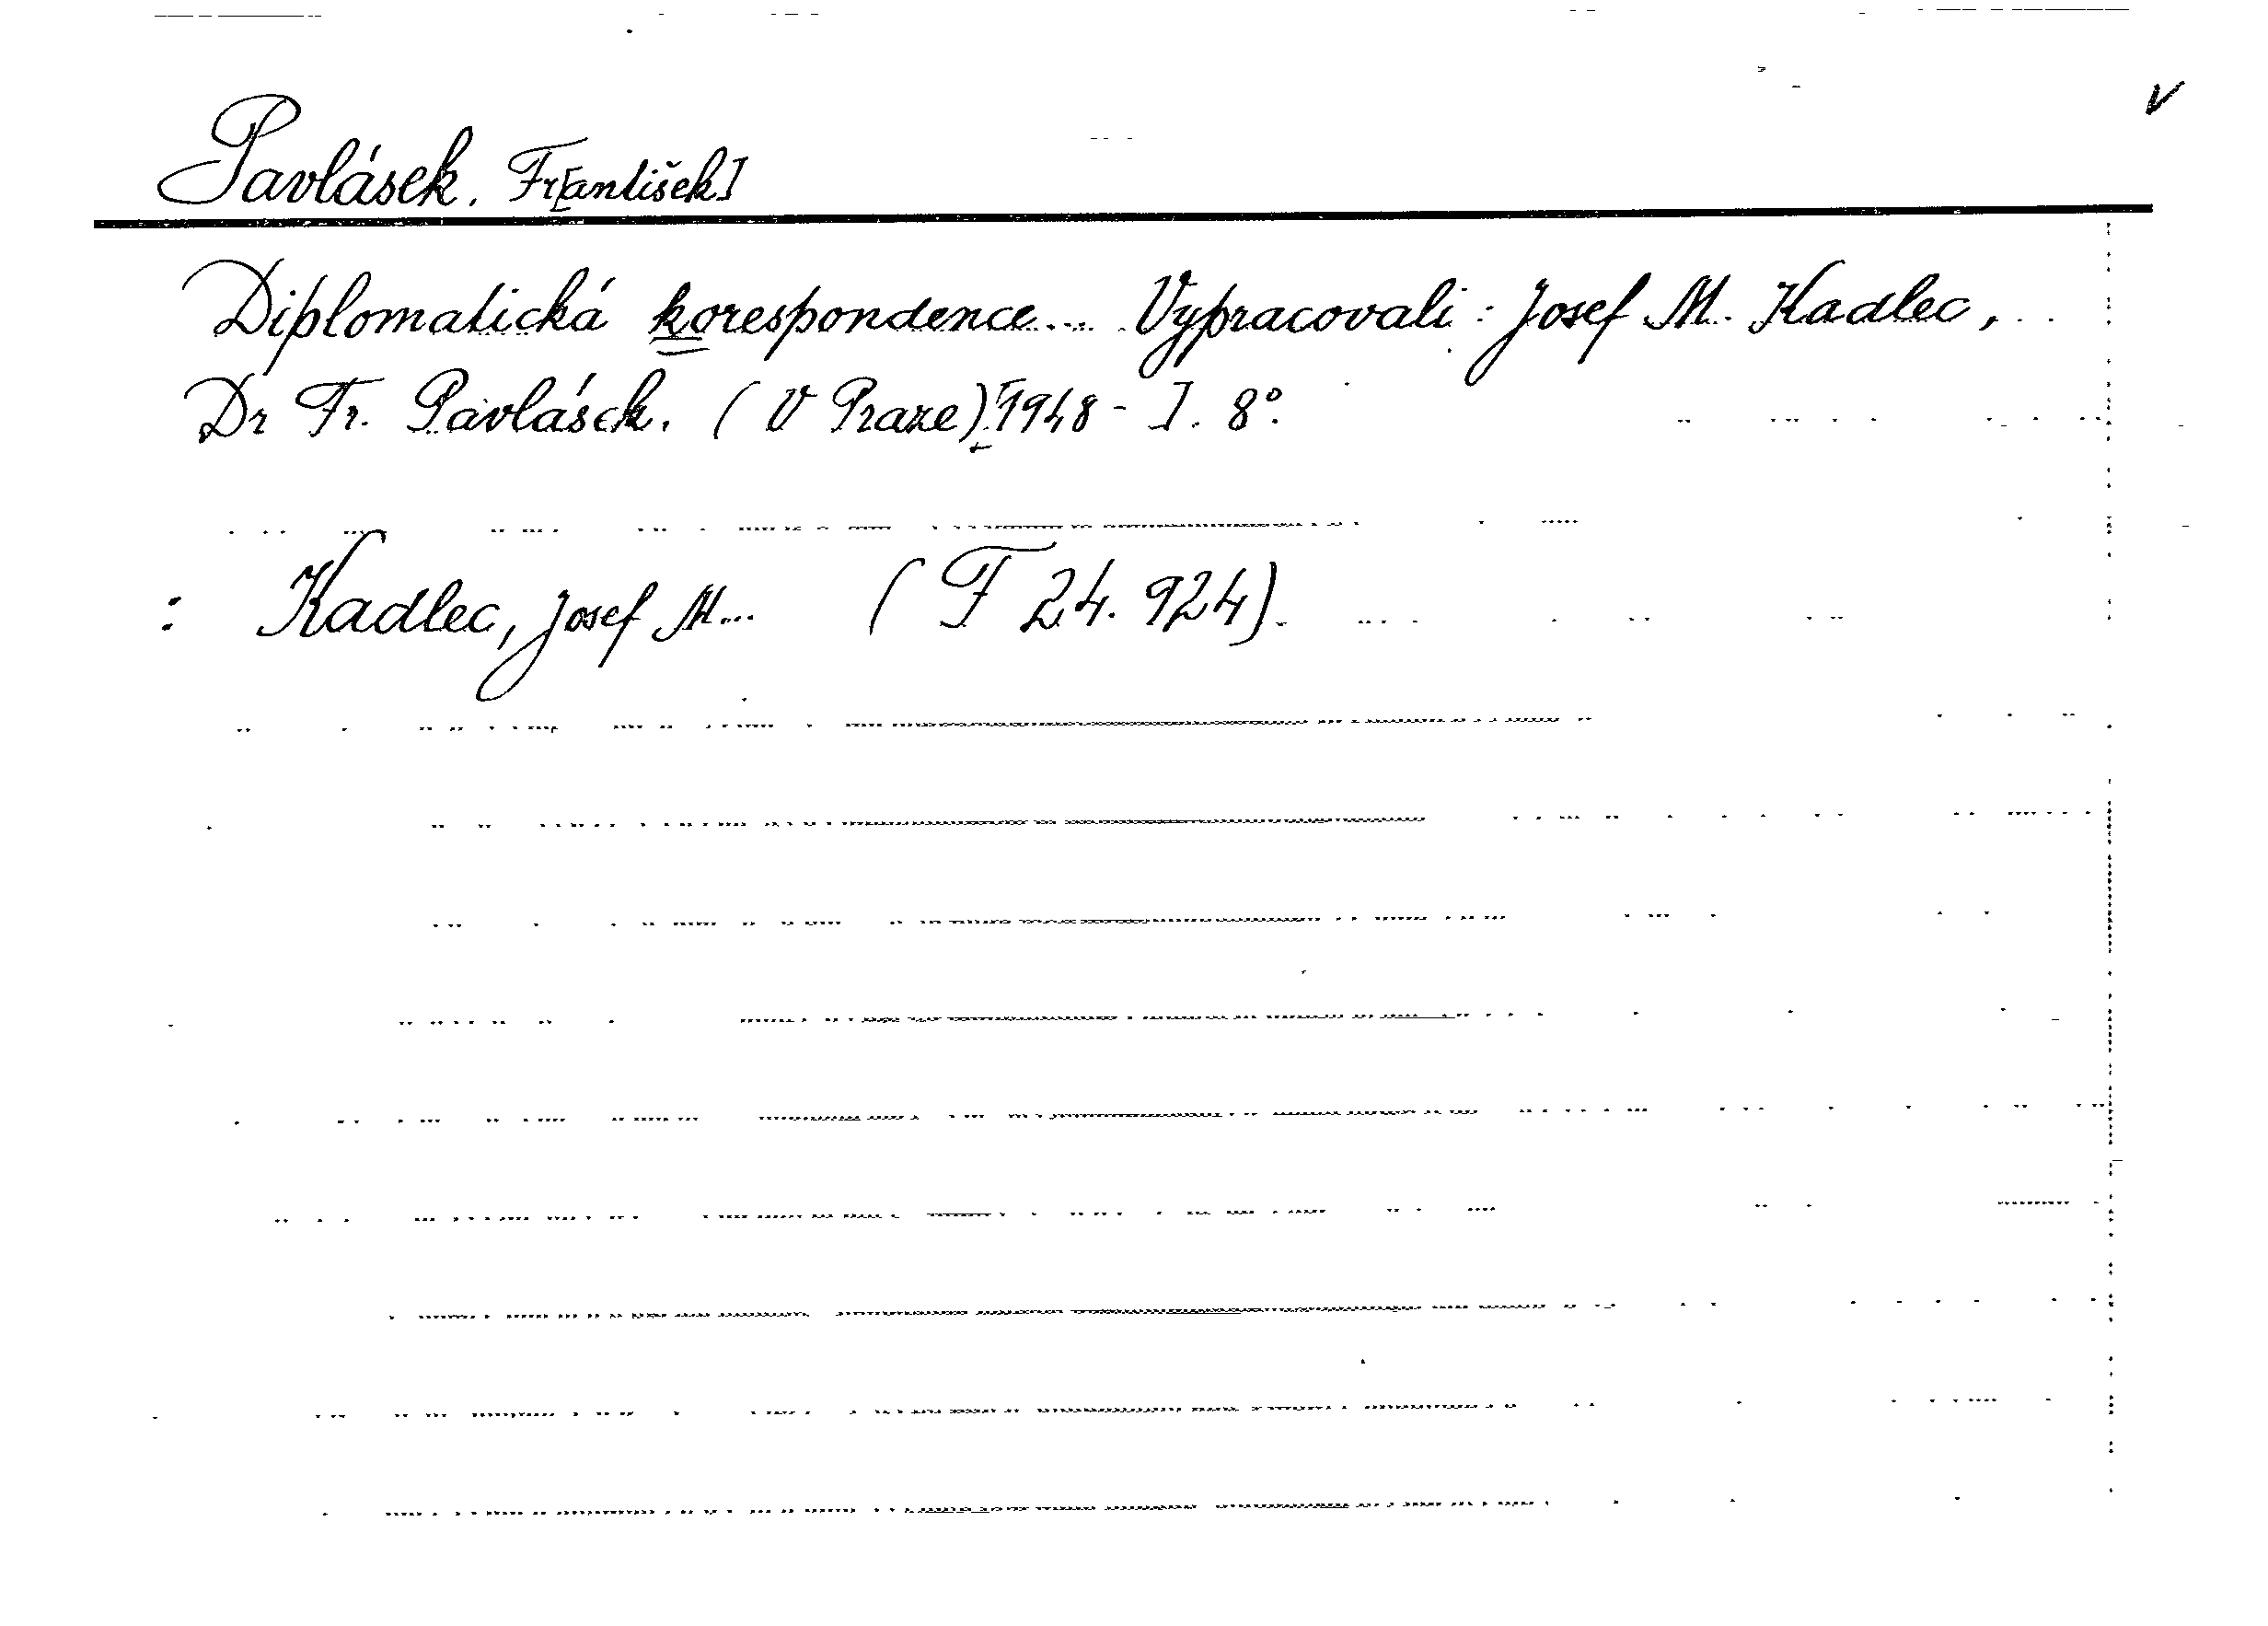 v
Pavlásek, Fr[antišek]
Diplomatická korespondence... Vypracovali: Josef M. Kadlec,
Dr Fr. Pavlásek. (V Praze) [1948 - I. 8°.
: Kadlec, Josef M... (F 24.924).